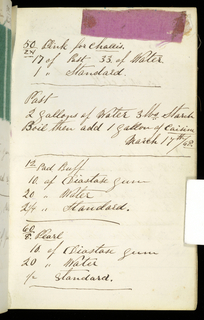 50 Pink for Challis.
24
17 of Past 33 of Water
1 " Standard.
Past
2 gallons of Water 3 lbs Starch
Boil then add 1 gallon of
March 17th/48.
Pad Buff
10 of Diastase gum
20 " Water
2¼ " Standard.
60
8 Pearl
10 of Diastase gum
20 " Water
Standard.